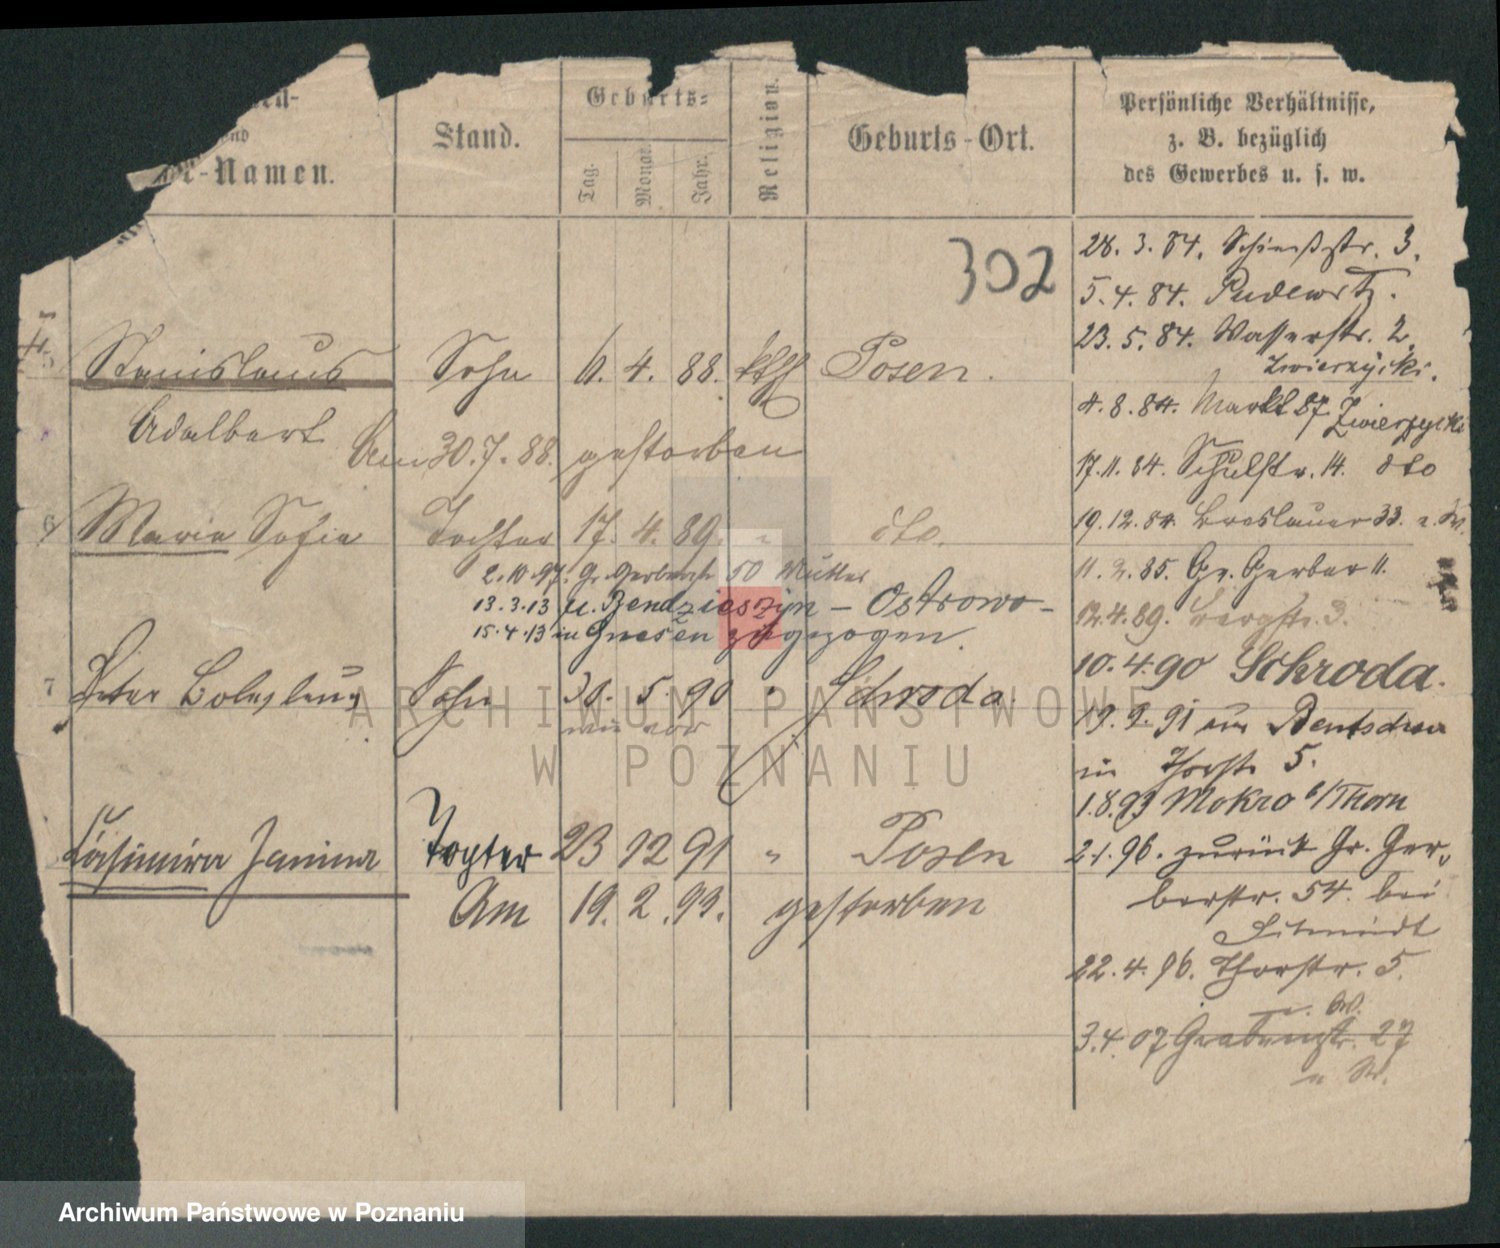 und
-Namen.
Stand.
Geburts-
Tag.
Monat.
Jahr.
Religion.
Geburts-Ort.
Persönliche Verhältnisse,
z. B. bezüglich
des Gewerbes u. s. w.
302
28. 3. 84. Schießstr. 3.
5. 4. 84. Pudewitz.
23. 5. 84. Wasserstr. 2.
Zwierzycki.
4. 8. 84. Markt 87 Zwierzycki
17. 11. 84. Schulstr. 14. dto
19. 12. 84. Breslauer 33.
11. 2. 85. Gr. Gerber 11.
12. 4. 89. Bergstr. 3.
10. 4. 90 Schroda.
19. 9. 91 aus Bentschen
in Thorstr. 5.
1. 8. 93 Mokro b/Thorn
2. 1. 96. zurück Gr. Ger-
berstr. 54. bei
22. 4. 96. Thorstr. 5.
3. 4. 07 Grabenstr. 27
5
Stanislaus Sohn 6. 4. 88. kth Posen.
Adalbert
Am 30. 7. 88. gestorben
6 Maria Sofia Tochter 17. 4. 89. " dto.
2. 10. 97. Gr. Gerberstr. 50 Mutter
13. 3. 13 u. Bendzieszyn - Ostrowo -
15. 4. 13 in Gnesen zugezogen.
7 Peter Boleslaus Sohn 30. 5. 90 " Schroda.
Casimira Janina Tochter 23 12 91 " Posen
Am 19. 2. 93. gestorben
ARCHIWUM PAŃSTWOWE
W POZNANIU
Archiwum Państwowe w Poznaniu